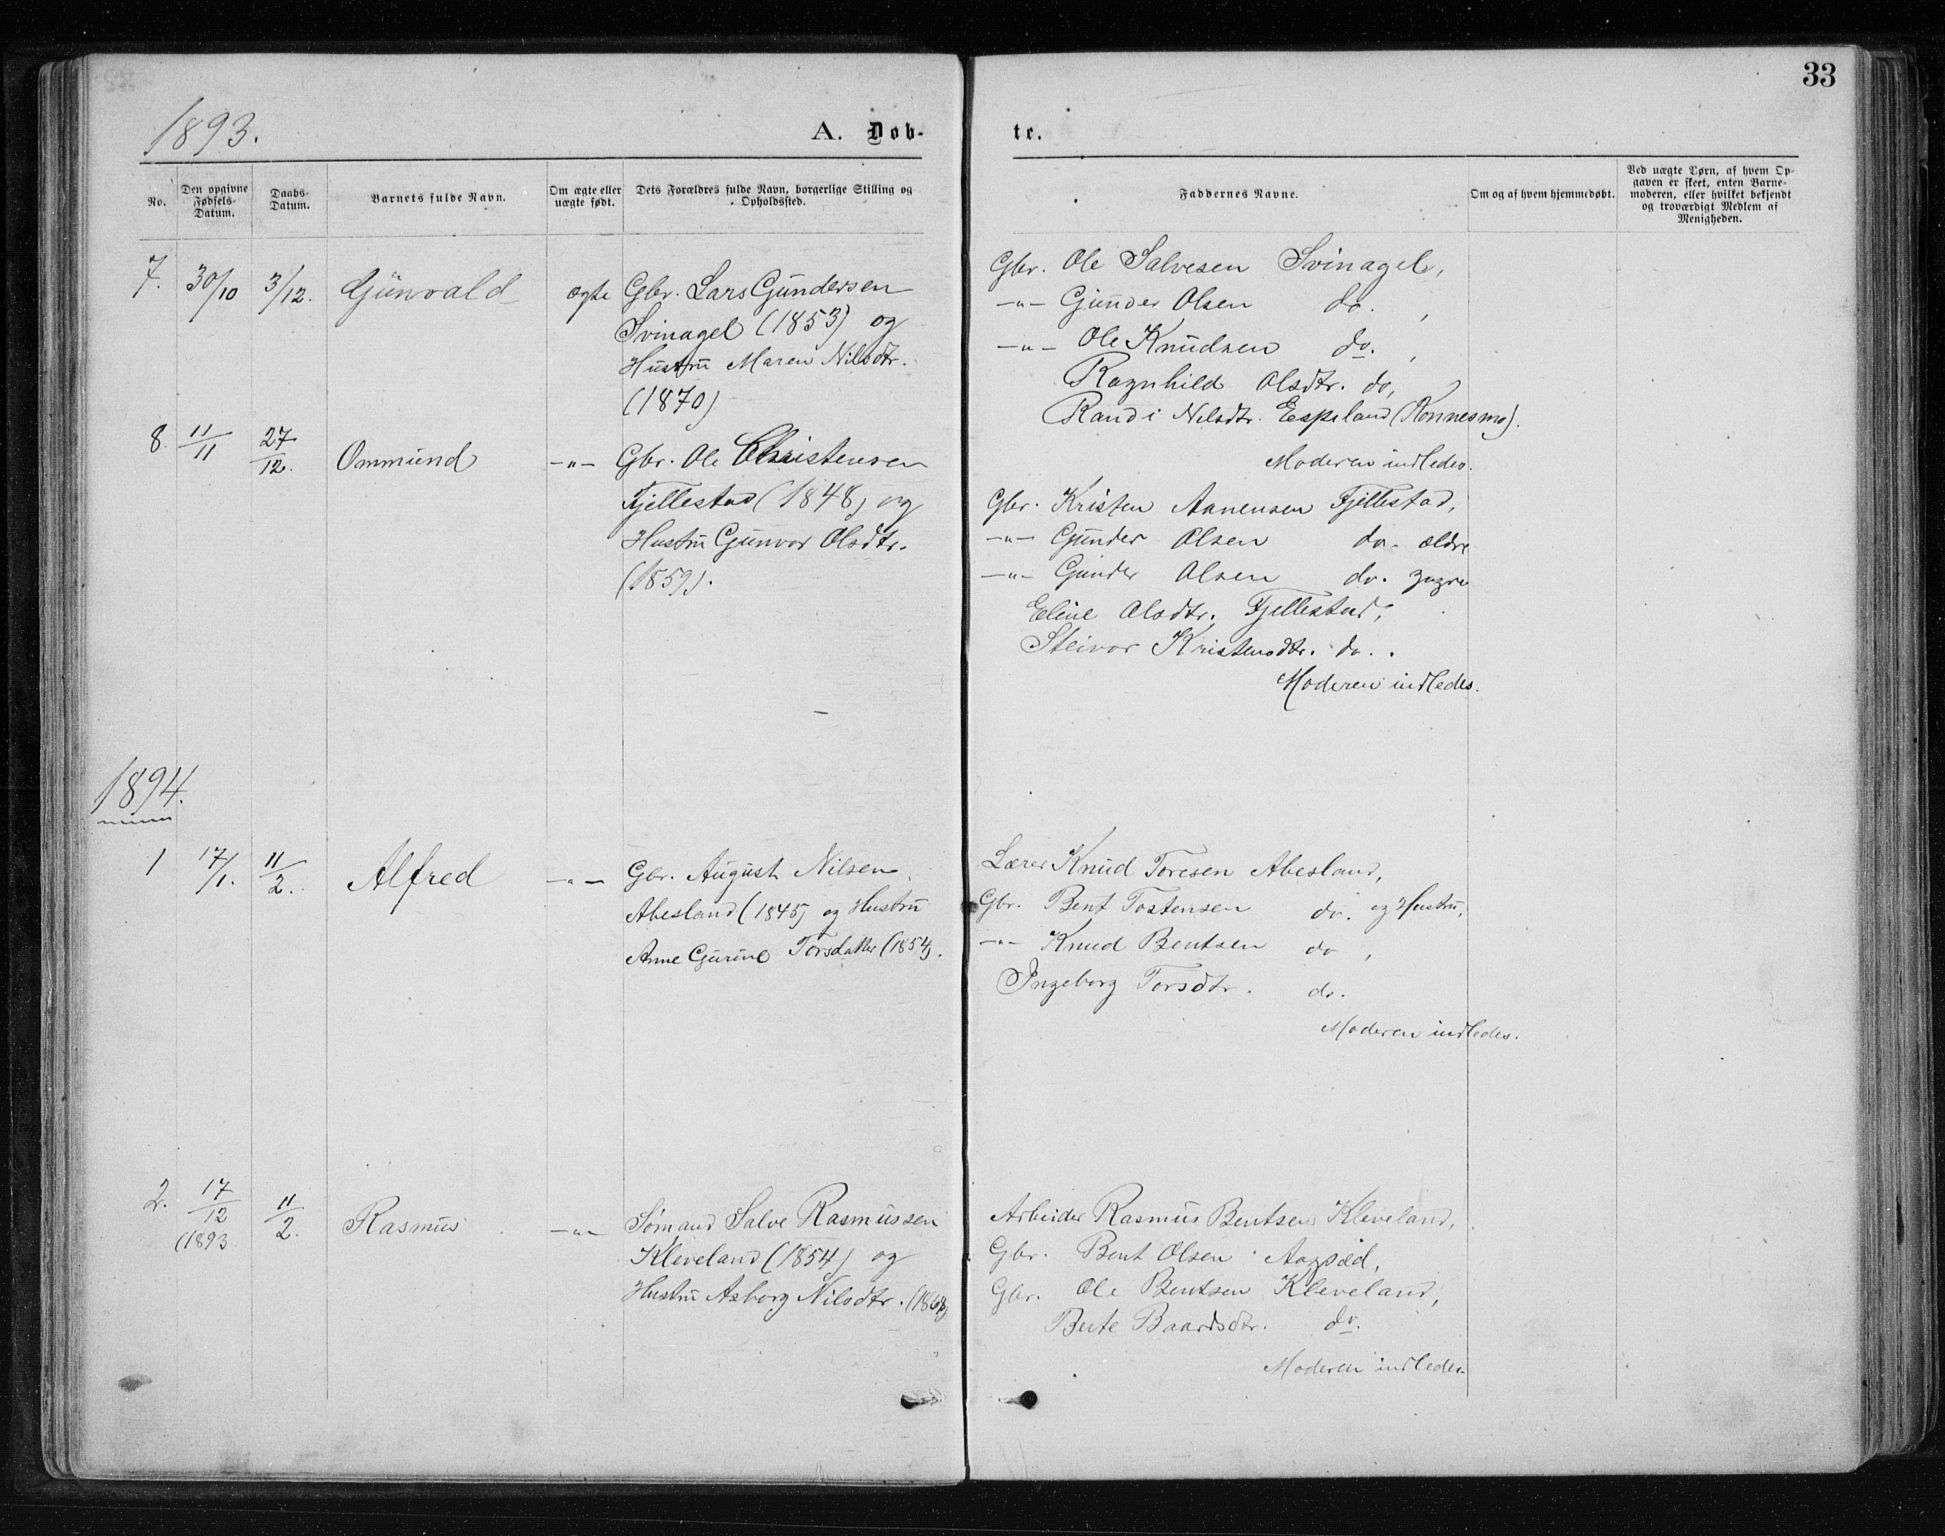 33
1893.
A. Døb-
te.
No.
Den opgivne Fødsels-Datum.
Daabs-Datum.
Barnets fulde Navn.
Om ægte eller uægte født.
Dets Forældres fulde Navn, borgerlige Stilling og Opholdssted.
Faddernes Navne.
Om og af hvem hjemmedøbt.
Ved uægte Børn, af hvem Opgaven er skeet, enten Barnemoderen, eller hvilket bekjendt og troværdigt Medlem af Menigheden.
7. 30/10 3/12. Gunvald ægte Gbr. Lars Gundersen
Svinagel (1853) og
Hustru Maren Nilsdtr.
(1870)
Gbr. Ole Salvesen Svinagel,
-"- Gunder Olsen do.,
-"- Ole Knudsen do.,
Ragnhild Olsdtr. do,
Randi Nilsdtr. Espeland (Konnesmo).
Moderen indledes.
8. 11/11 27/12. Ommund -"- Gbr. Ole Christensen
Fjellestad (1848) og
Hustru Gunvor Olsdtr.
(1859).
Gbr. Kristen Aanensen Fjellestad,
-"- Gunder Olsen do. ældre
-"- Gunder Olsen do. yngre
Eline Olsdtr. Fjellestad,
Steivor Kristensdtr. do.
Moderen indledes.
1894.
1 17/1. 11/2. Alfred -"- Gbr. August Nilsen
Abesland (1845) og Hustru
Anne Gurine Torsdatter (1854).
Lærer Knud Toresen Abesland,
Gbr. Bent Tostensen do. og Hustru,
-"- Knud Bentsen do,
Ingeborg Torsdtr. do.
Moderen indledes.
2. 17/12 (1893 11/2. Rasmus -"- Sømand Salve Rasmussen
Kleveland (1854) og
Hustru Asborg Nilsdtr. (1868)
Arbeider Rasmus Bentsen Kleveland,
Gbr. Bent Olsen Aagsæd,
Gbr. Ole Bentsen Kleveland,
Berte Baardsdtr. do.
Moderen indledes.